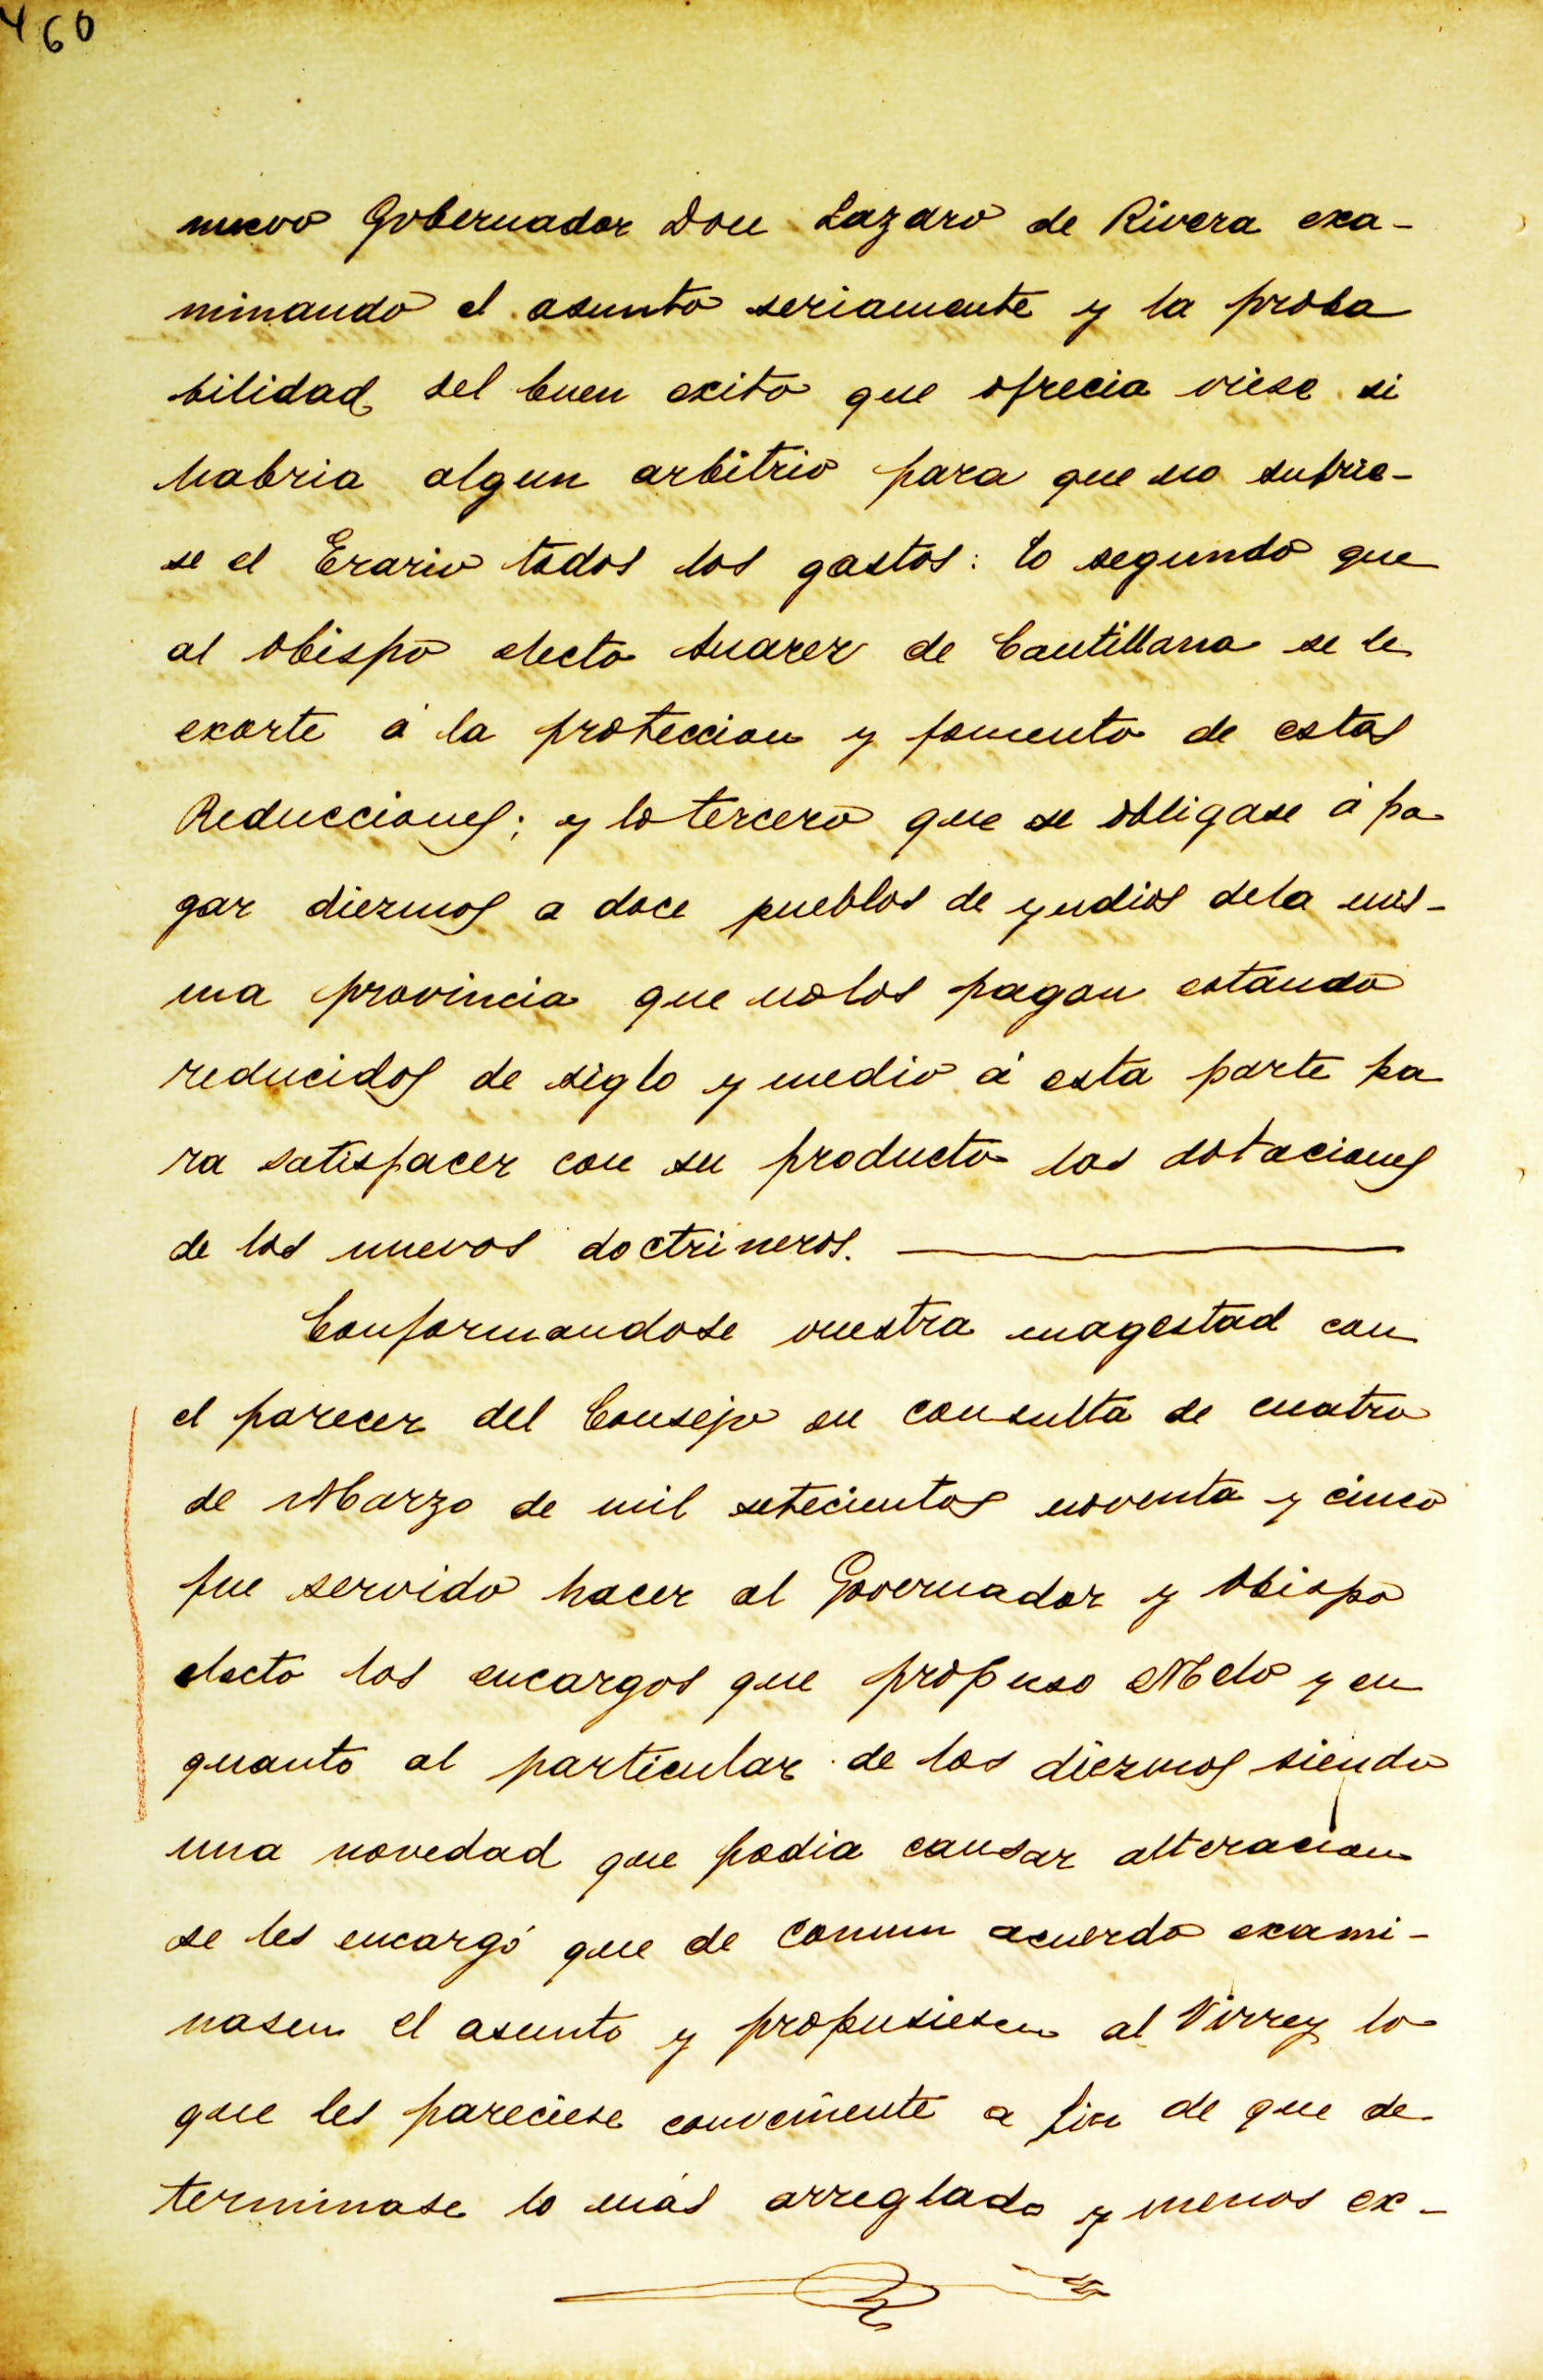 460
nuevo Gobernador Don Lazaro de Rivera exa-
minando el asunto seriamente y la proba
bilidad del buen exito que ofrecia viese si
habria algun arbitrio para que no sufrie-
se el Erario todos los gastos: lo segundo que
al obispo electo Suarez de Cantillana se le
exorte á la proteccion y fomento de estas
Reducciones; y lo tercero que se obligase á pa
gar diezmos a doce pueblos de yndios dela mis-
ma provincia que nolos pagan estando
reducidos de siglo y medio á esta parte pa
ra satisfacer con su producto las dotaciones
de los nuevos doctrineros.
Conformandose vuestra magestad con
el parecer del Consejo en consulta de cuatro
de Marzo de mil setecientos noventa y cinco
fue servido hacer al Governador y obispo
electo los encargos que propuso Melo y en
quanto al particular de los diezmos siendo
una novedad que podia causar alteracion
se les encargó que de comun acuerdo exami-
nasen el asunto y propusiesen al Virrey lo
que les pareciese conveniente a fin de que de
terminase lo más arreglado y menos ex-